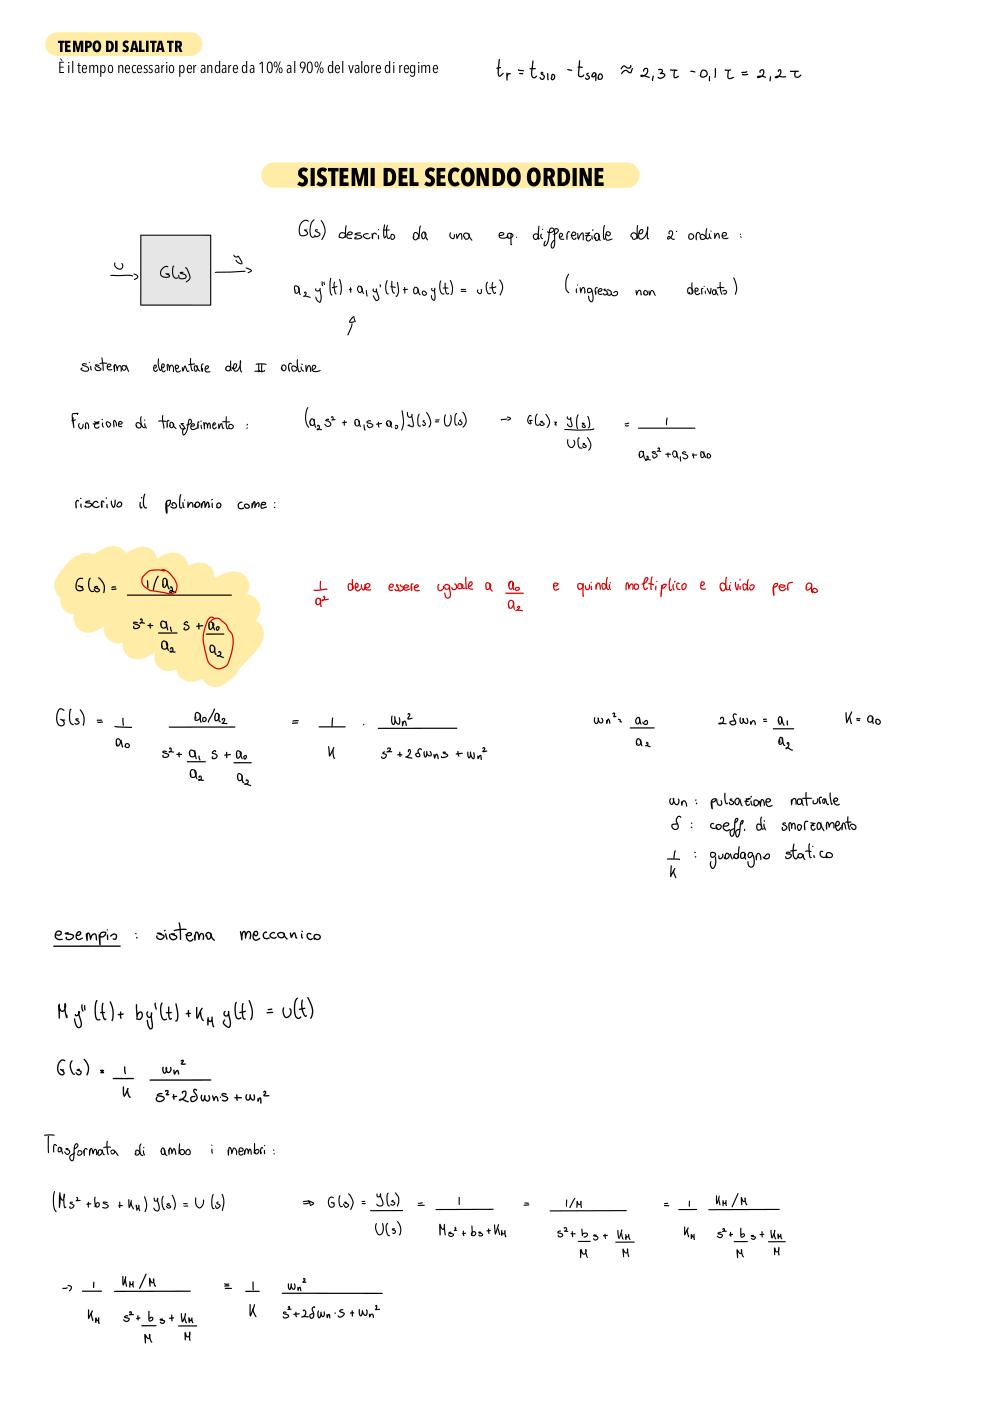 TEMPO DI SALITA TR
È il tempo necessario per andare da 10% al 90% del valore di regime
tr = ts10 - ts90 ≈ 2,3 τ - 0,1 τ = 2,2 τ
SISTEMI DEL SECONDO ORDINE
G(s) descritto da una eq. differenziale del 2° ordine :
u G(s) y
a₂ y''(t) + a₁ y'(t) + a₀ y(t) = u(t) (ingresso non derivato)
sistema elementare del II ordine
Funzione di trasferimento : (a₂s² + a₁s + a₀) Y(s) = U(s) → G(s) = Y(s)/U(s) = 1/(a₂s² + a₁s + a₀)
riscrivo il polinomio come :
G(s) = (1/a₂)/(s² + a₁/a₂ s + a₀/a₂)
1/a² deve essere uguale a a₀/a₂ e quindi moltiplico e divido per a₀
G(s) = 1/a₀ (a₀/a₂)/(s² + a₁/a₂ s + a₀/a₂) = 1/K · ωn²/(s² + 2δωns + ωn²) ωn² = a₀/a₂ 2δωn = a₁/a₂ K = a₀
ωn : pulsazione naturale
δ : coeff. di smorzamento
1/K : guadagno statico
esempio : sistema meccanico
M y''(t) + b y'(t) + K_M y(t) = u(t)
G(s) = 1/K ωn²/(s² + 2δωns + ωn²)
Trasformata di ambo i membri :
(Ms² + bs + K_M) Y(s) = U(s) ⇒ G(s) = Y(s)/U(s) = 1/(Ms² + bs + K_M) = (1/M)/(s² + b/M s + K_M/M) = 1/K_M (K_M/M)/(s² + b/M s + K_M/M)
→ 1/K_M (K_M/M)/(s² + b/M s + K_M/M) = 1/K ωn²/(s² + 2δωn·s + ωn²)